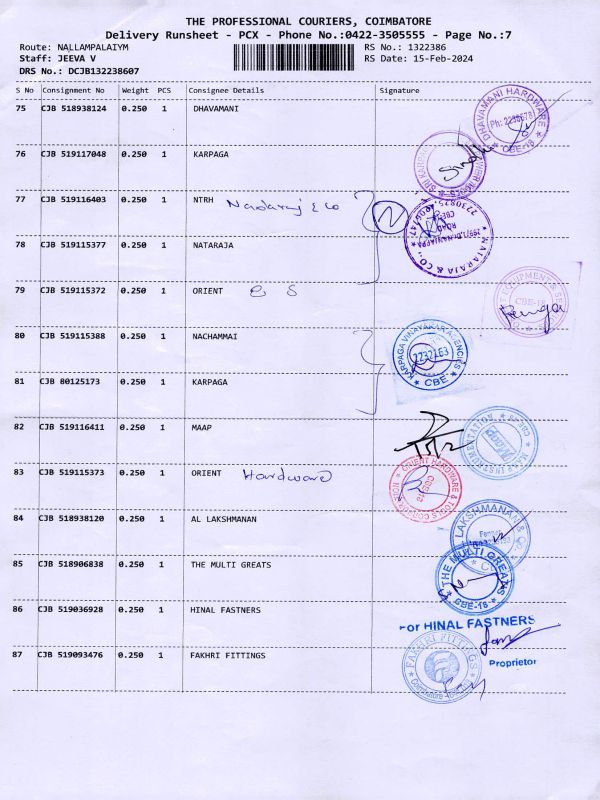 THE PROFESSIONAL COURIERS, COIMBATORE
Delivery Runsheet - PCX - Phone No.:0422-3505555 - Page No.:7
Route: NALLAMPALAIYM RS No.: 1322386
Staff: JEEVA V RS Date: 15-Feb-2024
DRS No.: DCJB132238607
S No Consignment No Weight PCS Consignee Details Signature
75 CJB 518938124 0.250 1 DHAVAMANI
DHAVAMANI HARDWARE
CBE-18
76 CJB 519117048 0.250 1 KARPAGA
77 CJB 519116403 0.250 1 NTRH Nadaraj & Co
78 CJB 519115377 0.250 1 NATARAJA
NATARAJA & CO.,
ROAD
79 CJB 519115372 0.250 1 ORIENT E S
CBE-18
80 CJB 519115388 0.250 1 NACHAMMAI
KARPAGA VINAYAKAR AGENCIES
CBE
81 CJB 80125173 0.250 1 KARPAGA
82 CJB 519116411 0.250 1 MAAP
83 CJB 519115373 0.250 1 ORIENT Hardware
ORIENT HARDWARE & TOOLS CORPORATION
84 CJB 518938120 0.250 1 AL LAKSHMANAN
LAKSHMANAN & CO.
85 CJB 518906838 0.250 1 THE MULTI GREATS
THE MULTI GREATS
CBE-18
86 CJB 519036928 0.250 1 HINAL FASTNERS
For HINAL FASTNERS
Proprietor
87 CJB 519093476 0.250 1 FAKHRI FITTINGS
FAKHRI FITTINGS